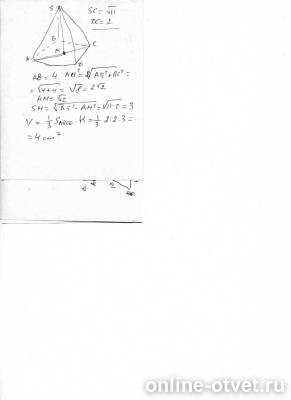 S
SC = √11
DC = 2
B
C
M
A
D
AB = 4 AC² = √AB² + BC² =
= √4+4 = √8 = 2√2
AM = √2
SM = √AS² - AM² = √11-2 = 3
V = 1/3 S_ABCD · H = 1/3 2·2·3 =
= 4 cm³
online-otvet.ru